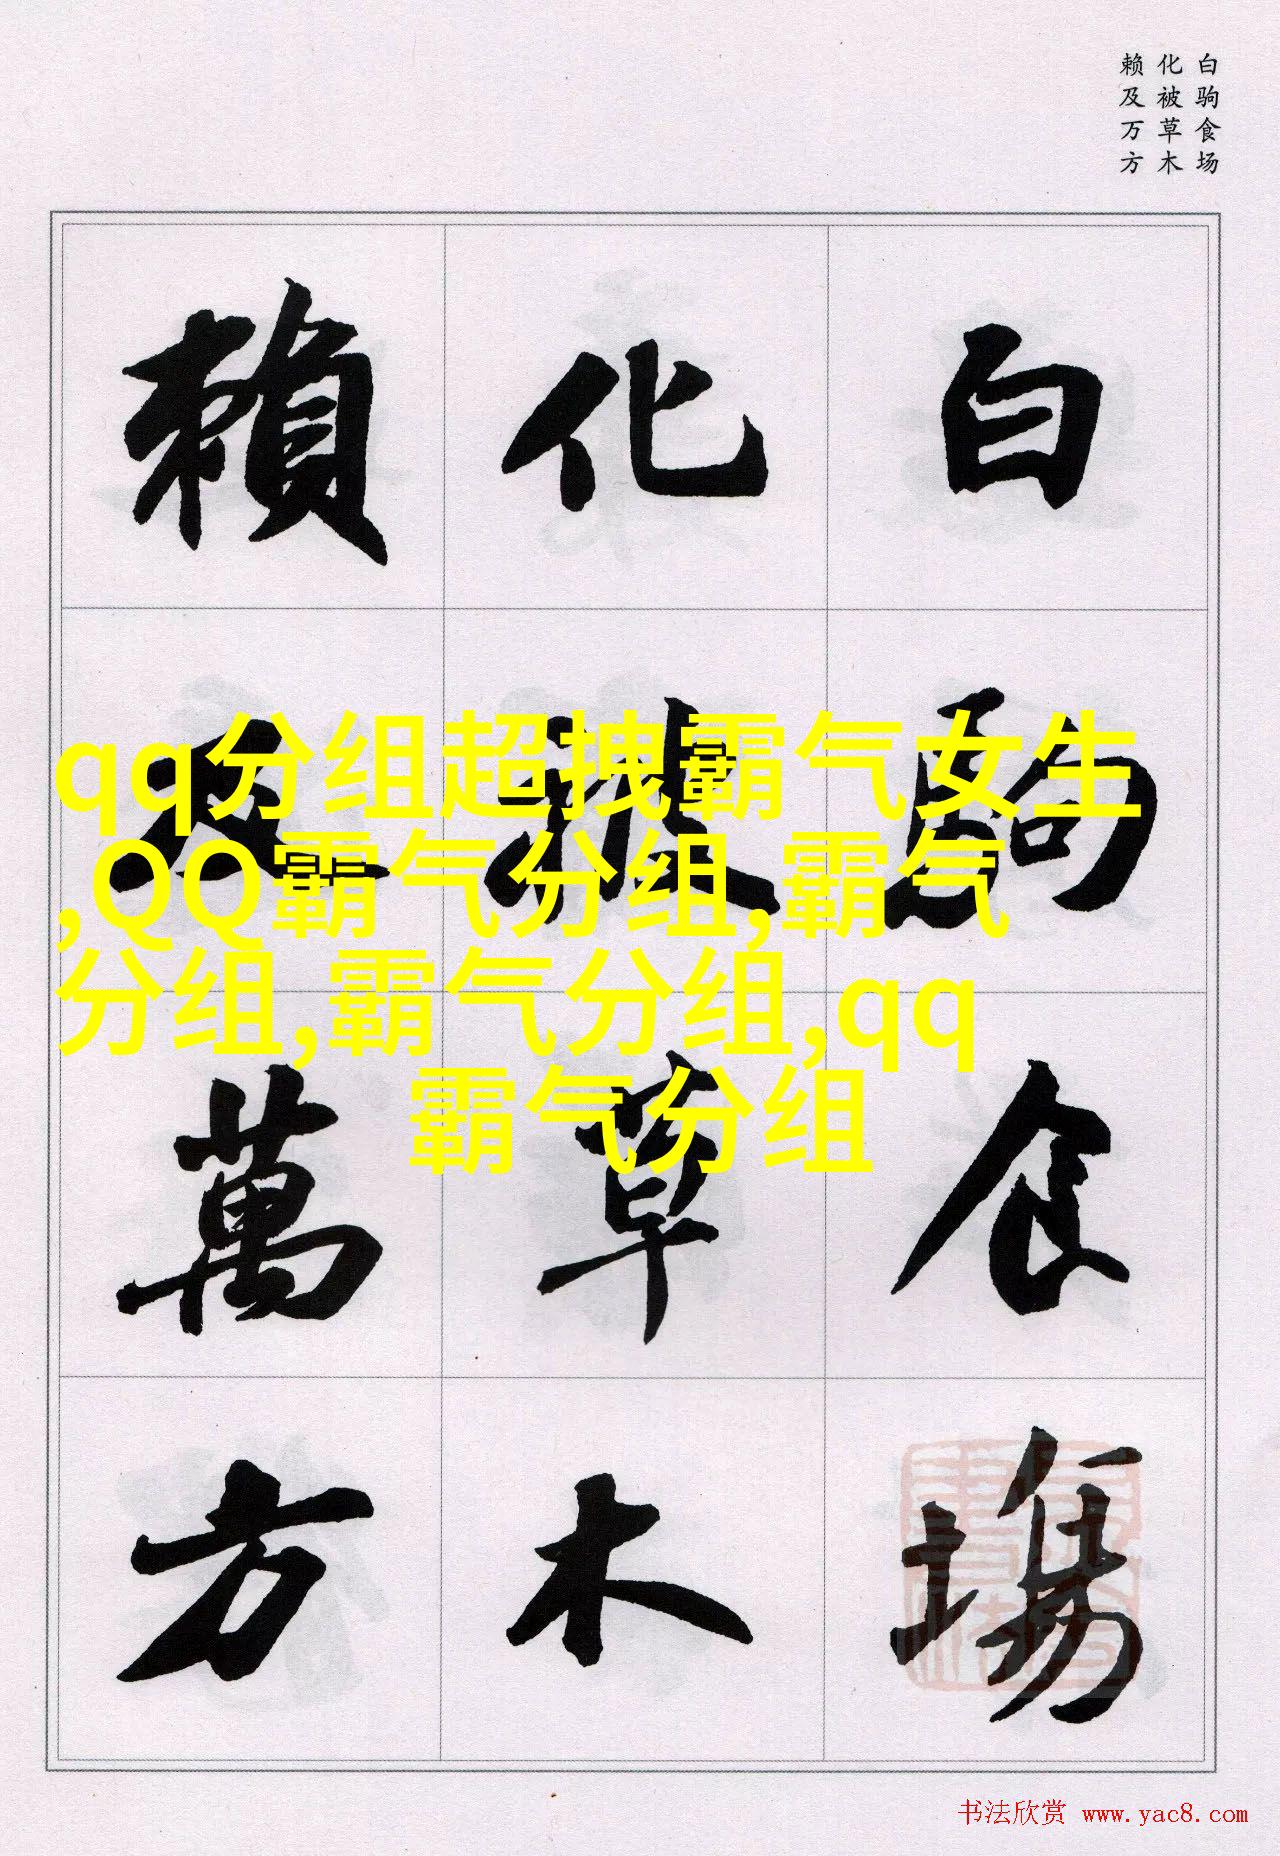 白驹食场
化被草木
赖及万方
白駒食場
化被草木
賴及萬方
qq分组超拽霸气女生
,QQ霸气分组,霸气
分组,霸气分组,qq
霸气分组
书法欣赏 www.yac8.com